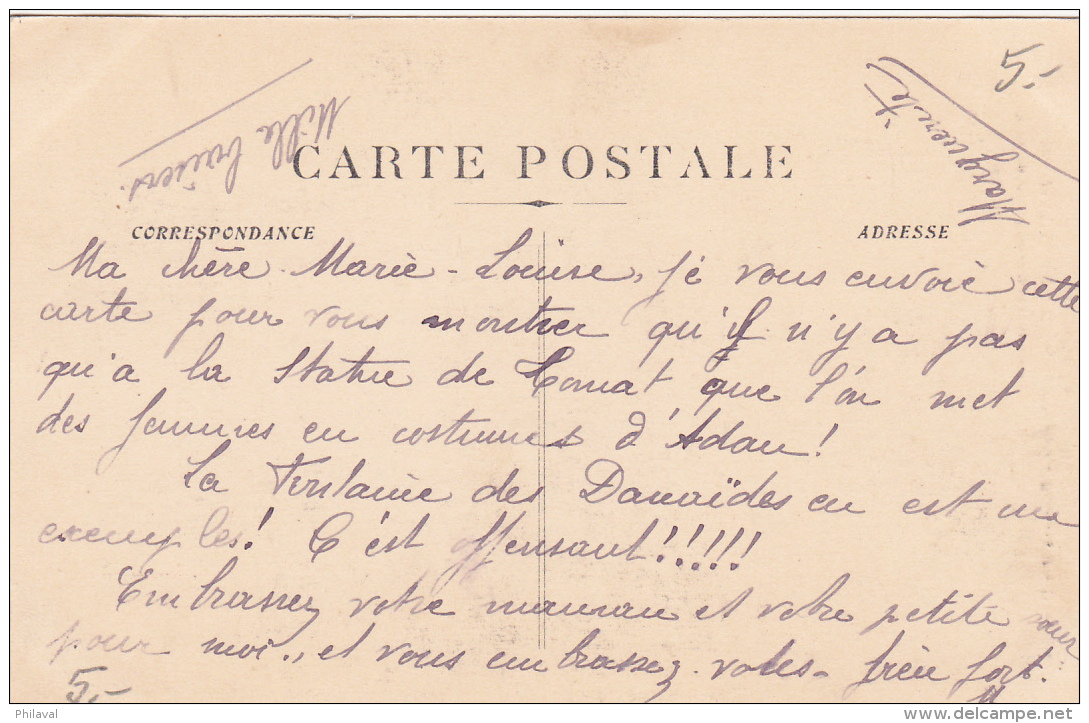 5.-
Mille baisers.
Marguerite
CARTE POSTALE
CORRESPONDANCE
ADRESSE
Ma chère Marie-Louise, je vous envoie cette
carte pour vous montrer qu'il n'y a pas
qu'a la statue de que l'on met
des femmes en costumes d'Adam!
La Fontaine des Danaïdes en est un
exemples! C'est offensant!!!!!
Embrassez votre maman et votre petite sœur
pour moi., et vous embrassez. bien fort.
5.-
Philaval
delcampe.net